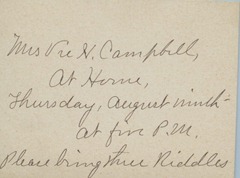 Mrs Vie H. Campbell,
At Home,
Thursday, August ninth
at five P.M.
Please bring three Riddles